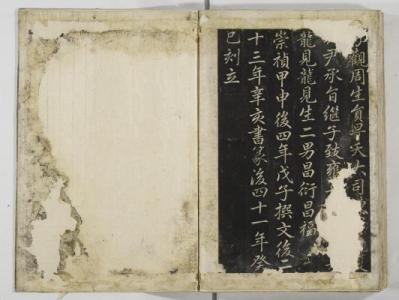 觀周生員早夭大司
尹承旨継子致雍
龍見龍見生二男昌衍昌福
崇禎甲申後四年戊子撰文後二
十三年辛亥書篆後四十一年癸
巳刻立